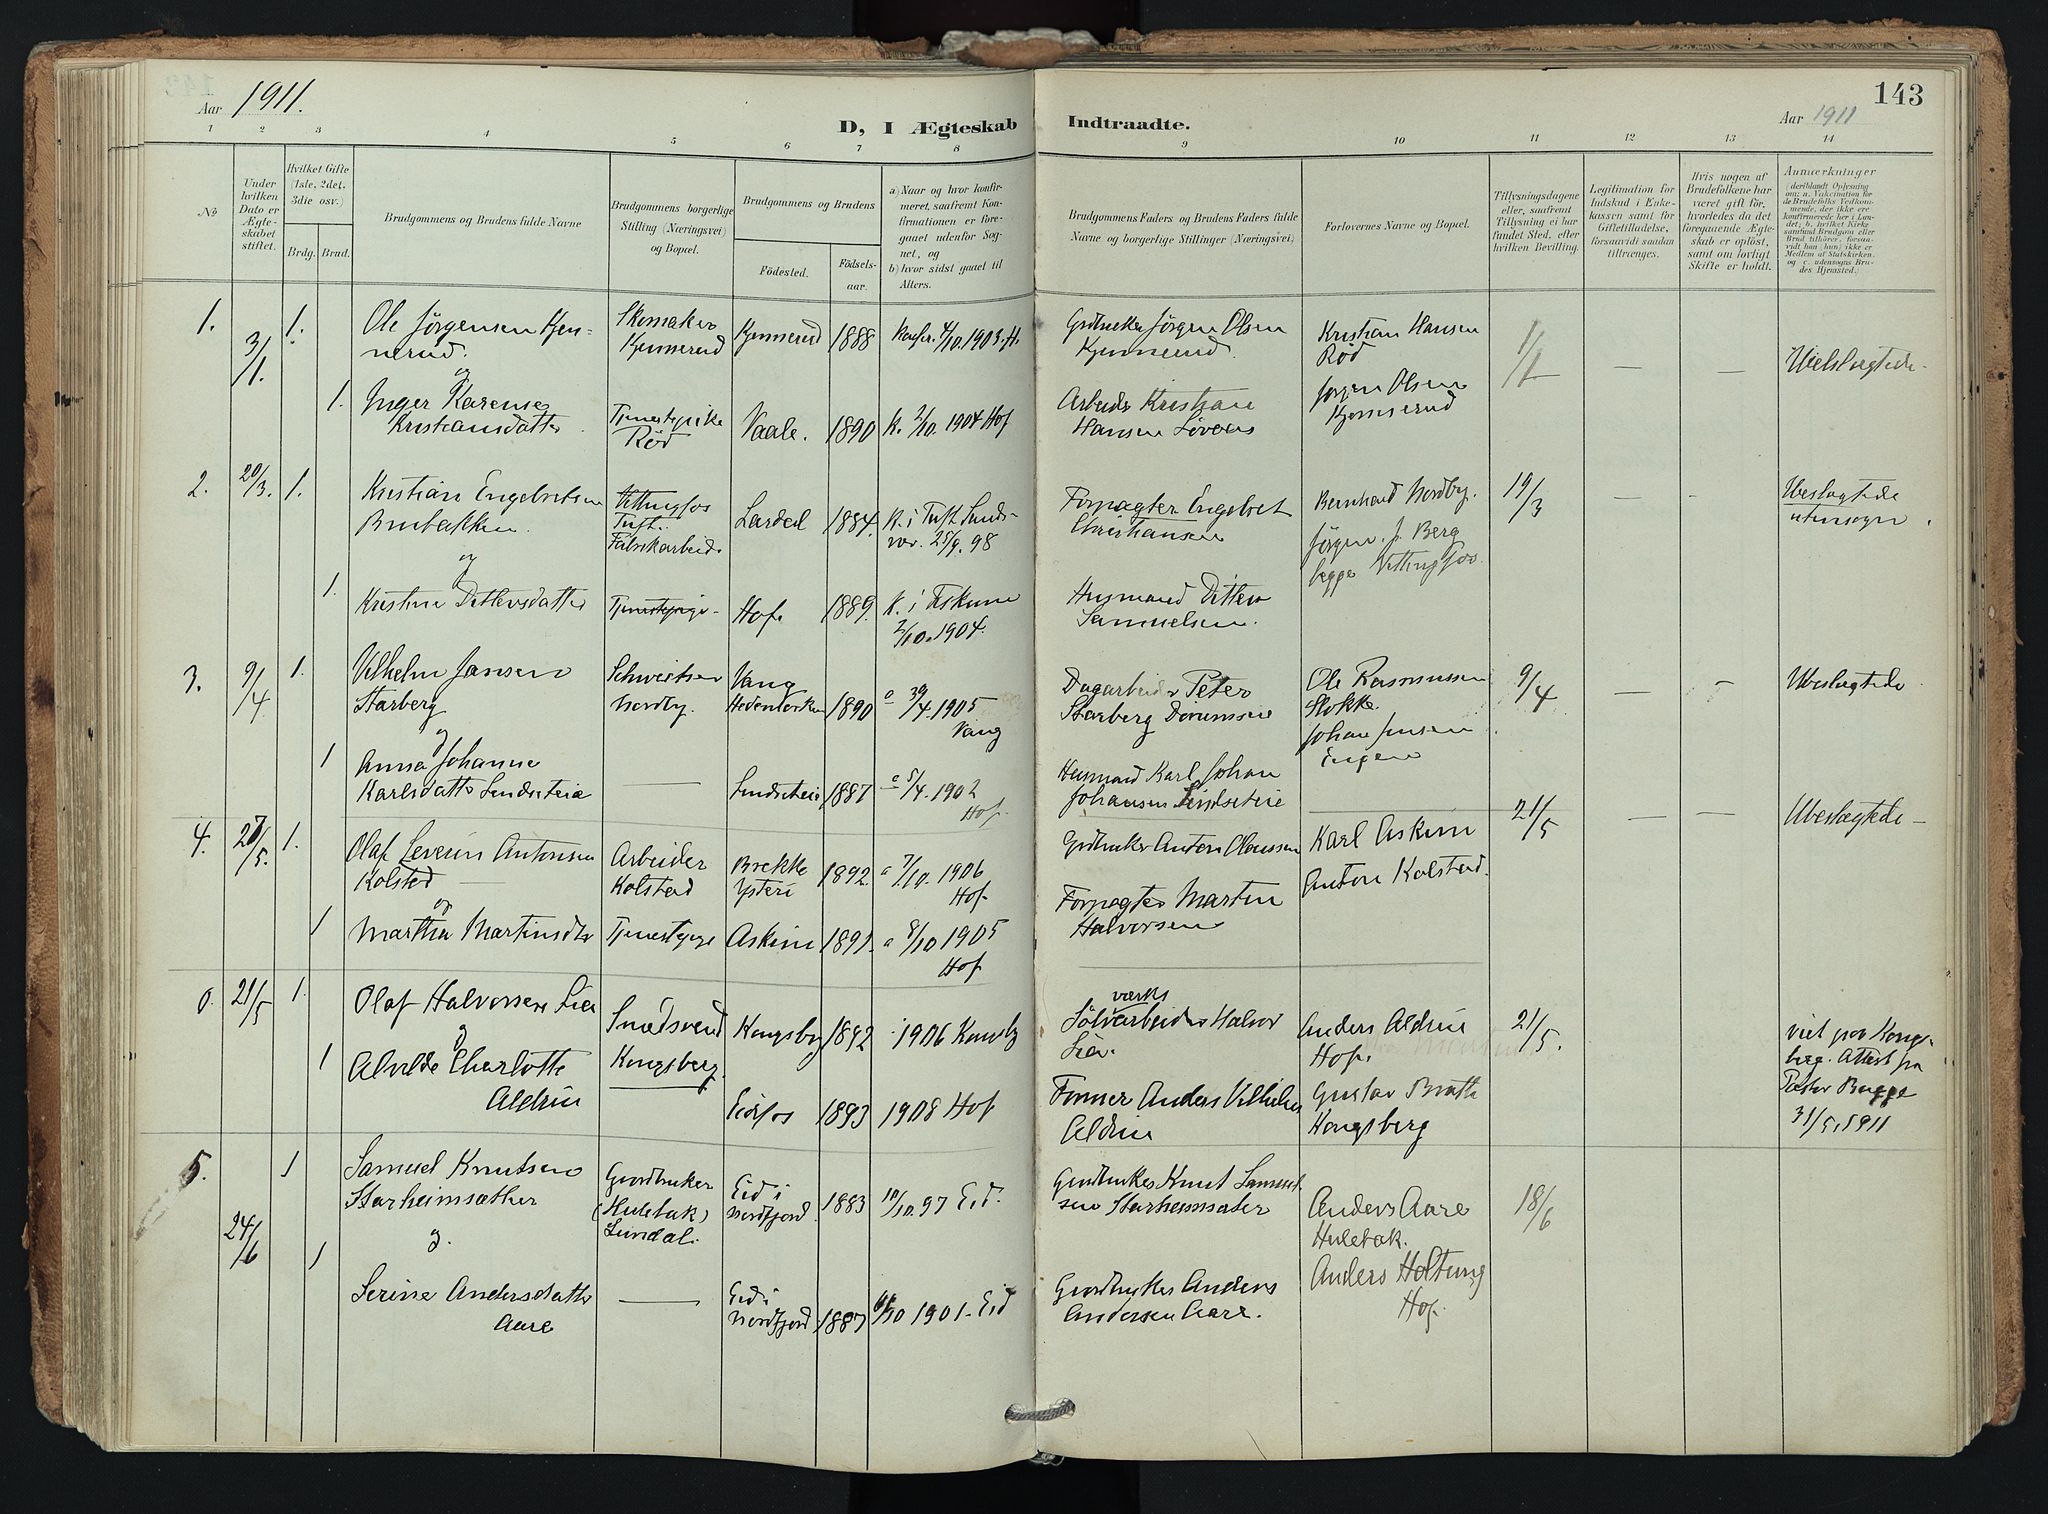 143
Aar 1911.
D, I Ægteskab Indtraadte.
Aar 1911
1 2 3 4 5 6 7 8 9 10 11 12 13 14
No
Under hvilken Dato er Ægteskabet stiftet.
Hvilket Gifte (1ste, 2det, 3die osv.)
Brdg. Brud.
Brudgommens og Brudens fulde Navne
Brudgommens borgerlige Stilling (Næringsvei) og Bopæl.
Brudgommens og Brudens
Födested.
Födselsaar.
a) Naar og hvor konfirmeret, saafremt Konfirmationen er foregaaet udenfor Sognet, og
b) hvor sidst gaaet til Alters.
Brudgommens Faders og Brudens Faders fulde Navne og borgerlige Stillinger (Næringsvei)
Forlovernes Navne og Bopæl.
Tillysningsdagene eller, saafremt Tillysning ei har fundet Sted, efter hvilken Bevilling.
Legitimation for Indskud i Enkekassen samt for Giftetilladelse, forsaavidt saadan tiltrænges.
Hvis nogen af Brudefolkene har været gift för, hvorledes da det foregaaende Ægteskab er oplöst, samt om lovligt Skifte er holdt.
Anmærkninger
(deriblandt Oplysning om: a. Vakcination for de Brudefolks Vedkommende, der ikke er konfirmerede her i Landet; b. hvilket Kirkesamfund Brudgom eller Brud tilhörer, forsaavidt han (hun) ikke er Medlem af Statskirken, og c. udensogns Brudes Hjemsted.)
1. 3/1. 1. Ole Jörgensen Kjennerud. Skomaker Kjennerud Kjennerud 1888 Konfir. 4/10.1903.H. Grdbruker Jörgen Olsen Kjennerud. Kristian Hansen Röd 1/1 — — Ubeslægtede
og
1. Inger Karense Kristiansdatter Tjenestepike Röd Vaale. 1890 K. 2/10. 1904 Hof Arbeider Kristian Hansen Jörgen Olsen Kjennerud
2. 20/3. 1. Kristian Engebretsen Brubakken Vittingfos Tuft. Fabrikarbeid. Lardal 1884. K. i Tuft Sandsvær. 25/9.98 Forpagter Engebret Christiansen Bernhard Nordby. Jörgen. J. Berg begge Vittingfos 19/3 — - Ubeslægtede utensogns
og
1. Kristine Detlevsdatter Tjenestepige. Hof. 1889. K. i Eskune 2/10. 1904. Husmand Ditlev Samuelsen.
3. 9/4 1. Vilhelm Jansen Starberg Schweitser Nordby. Vang Hedemarken 1890 a 30/4.1905 Vang Dagarbeider Peter Starberg Ole Rasmussen Stokke. Johan Jensen Engen 9/4 — - Ubeslægtede
og
1 Anna Johanne Karlsdatter Lindseteie — Lindseteie 1887 a 5/4.1902 Hof Husmand Karl Johan Johansen Lindseteie
4. 27/5. 1. Olaf Severin Antonsen Kolsted Arbeider Kolstad Brekke Ysteri 1892. a 7/10.1906 Hof Grdbruker Anton Olaussen Karl Askim Anton Kolstad. 21/5 — — Ubeslægtede
og
1 Martha Martinsdtr Tjenestepige Askim 1891. a 8/10 1905 Hof Forpagter Martin Halvorsen
0. 21/5 1. Olaf Halvorsen Lia Smedsvend Kongsberg. Kongsberg 1892 1906 Konsbg Sölvværksarbeider Halvor Lia. Anders Aldrin Hof. 21/5. viet paa Kongsberg. Attest fra Pastor Bugge 31/5.1911
og
1 Alvilde Charlotte Aldrin — Eidsfos 1893 1908 Hof Former Anders Vilhelm Aldrin Gustav Bratli Kongsberg
5. 24/6 1 Samuel Knutsen Starheimsæther Gaardbruker (Huletak) Sundal. Eid i Nordfjord. 1883 10/10.97 Eid. Gaardbruker Knut Samuelsen Starheimsæter Anders Aare Huletak. 18/6
g.
1 Serine Andersdatter Aare — Eid i Nordfjord 1887 /10 1901. Eid Gaardbruker Anders Andersen Aare. Anders Holtung Hof.